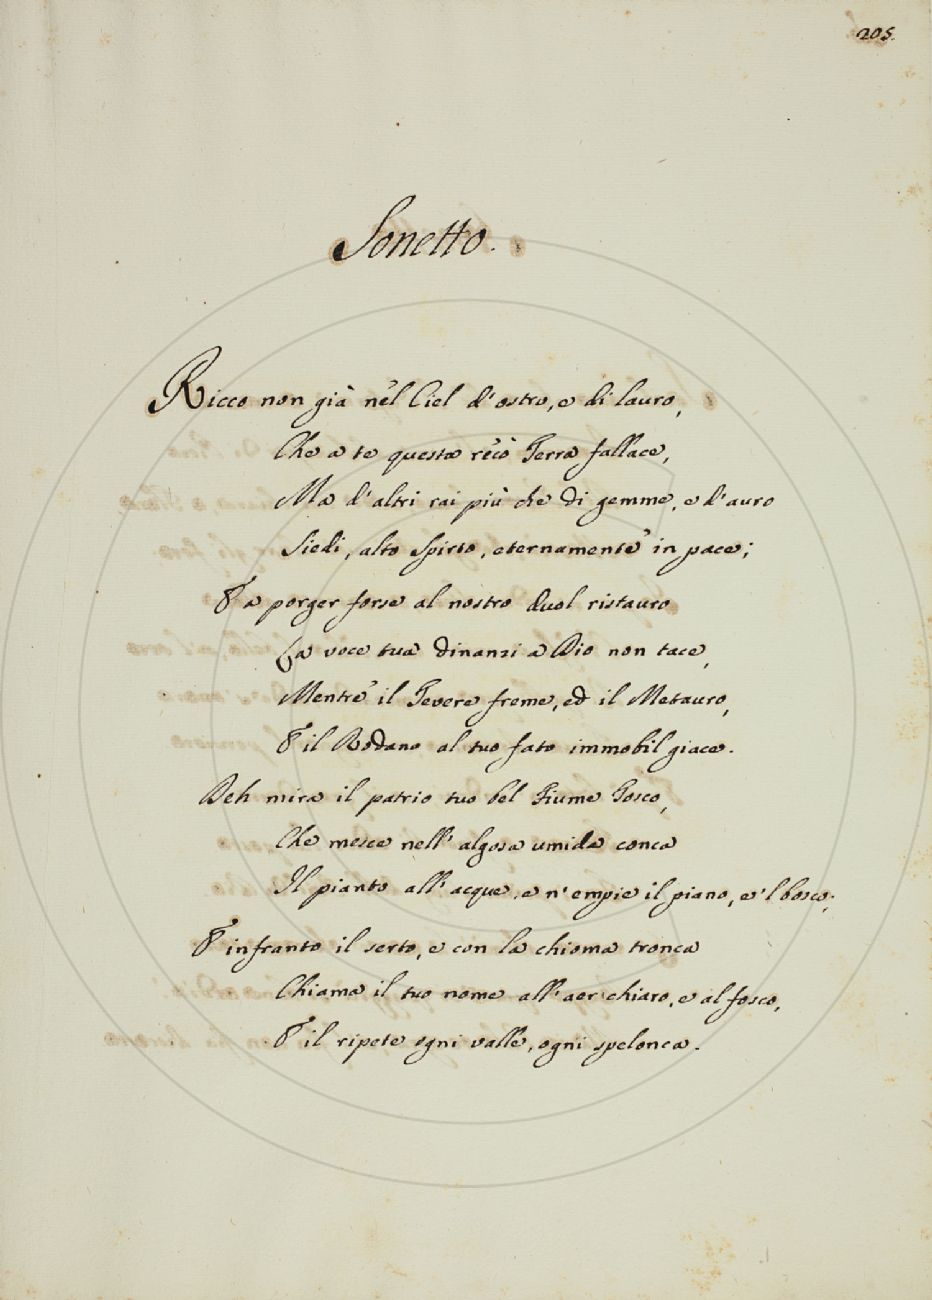 205.
Sonetto.
Ricco non già nel Ciel d'ostro, e di lauro,
Che a te questa recò Terra fallace,
Ma d'altri rai più che di gemme, e d'auro
Siedi, alto Spirto, eternamente in pace;
E a porger forse al nostro duol ristauro
La voce tua dinanzi a Dio non tace,
Mentre il Tevere freme, ed il Metauro,
E il Rodano al tuo fato immobil giace.
Deh mira il patrio tuo bel Fiume Tosco,
Che mesce nell'algosa umida conca
Il pianto all'acque, e n'empie il piano, e 'l bosco;
E infranto il serto, e con la chioma tronca
Chiama il tuo nome all'aer chiaro, e al fosco,
E il ripete ogni valle, ogni spelonca.